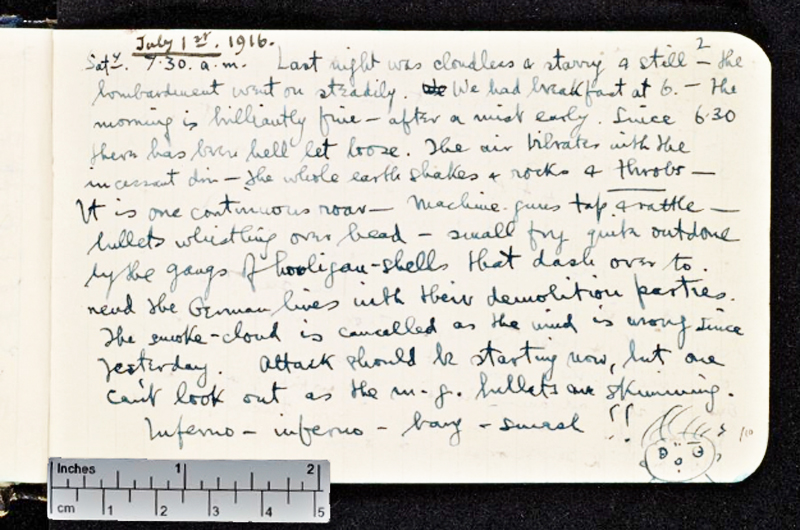 July 1st. 1916.
2
Saty. 7.30. a.m. Last night was cloudless & starry & still – the
bombardment went on steadily. We had breakfast at 6. – the
morning is brilliantly fine – after a mist early. Since 6.30
there has been hell let loose. The air vibrates with the
incessant din – the whole earth shakes & rocks & throbs –
It is one continuous roar – Machine-guns tap & rattle –
bullets whistling over head – small fry quite outdone
by the gangs of hooligan-shells that dash over to
rend the German lines with their demolition parties.
The smoke-cloud is cancelled as the wind is wrong since
yesterday. Attack should be starting now, but one
can't look out as the m-g. bullets are skimming.
Inferno – inferno – bang – smash !!
Inches 1 2
cm 1 2 3 4 5